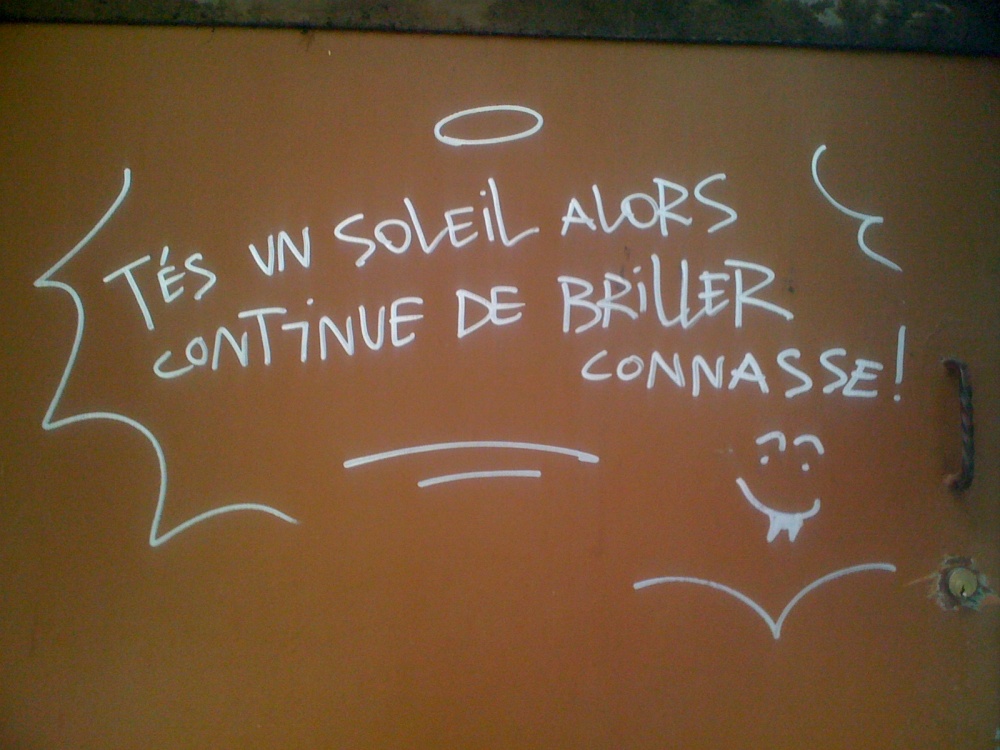 TÉS UN SOLEIL ALORS
CONTINUE DE BRILLER
CONNASSE!